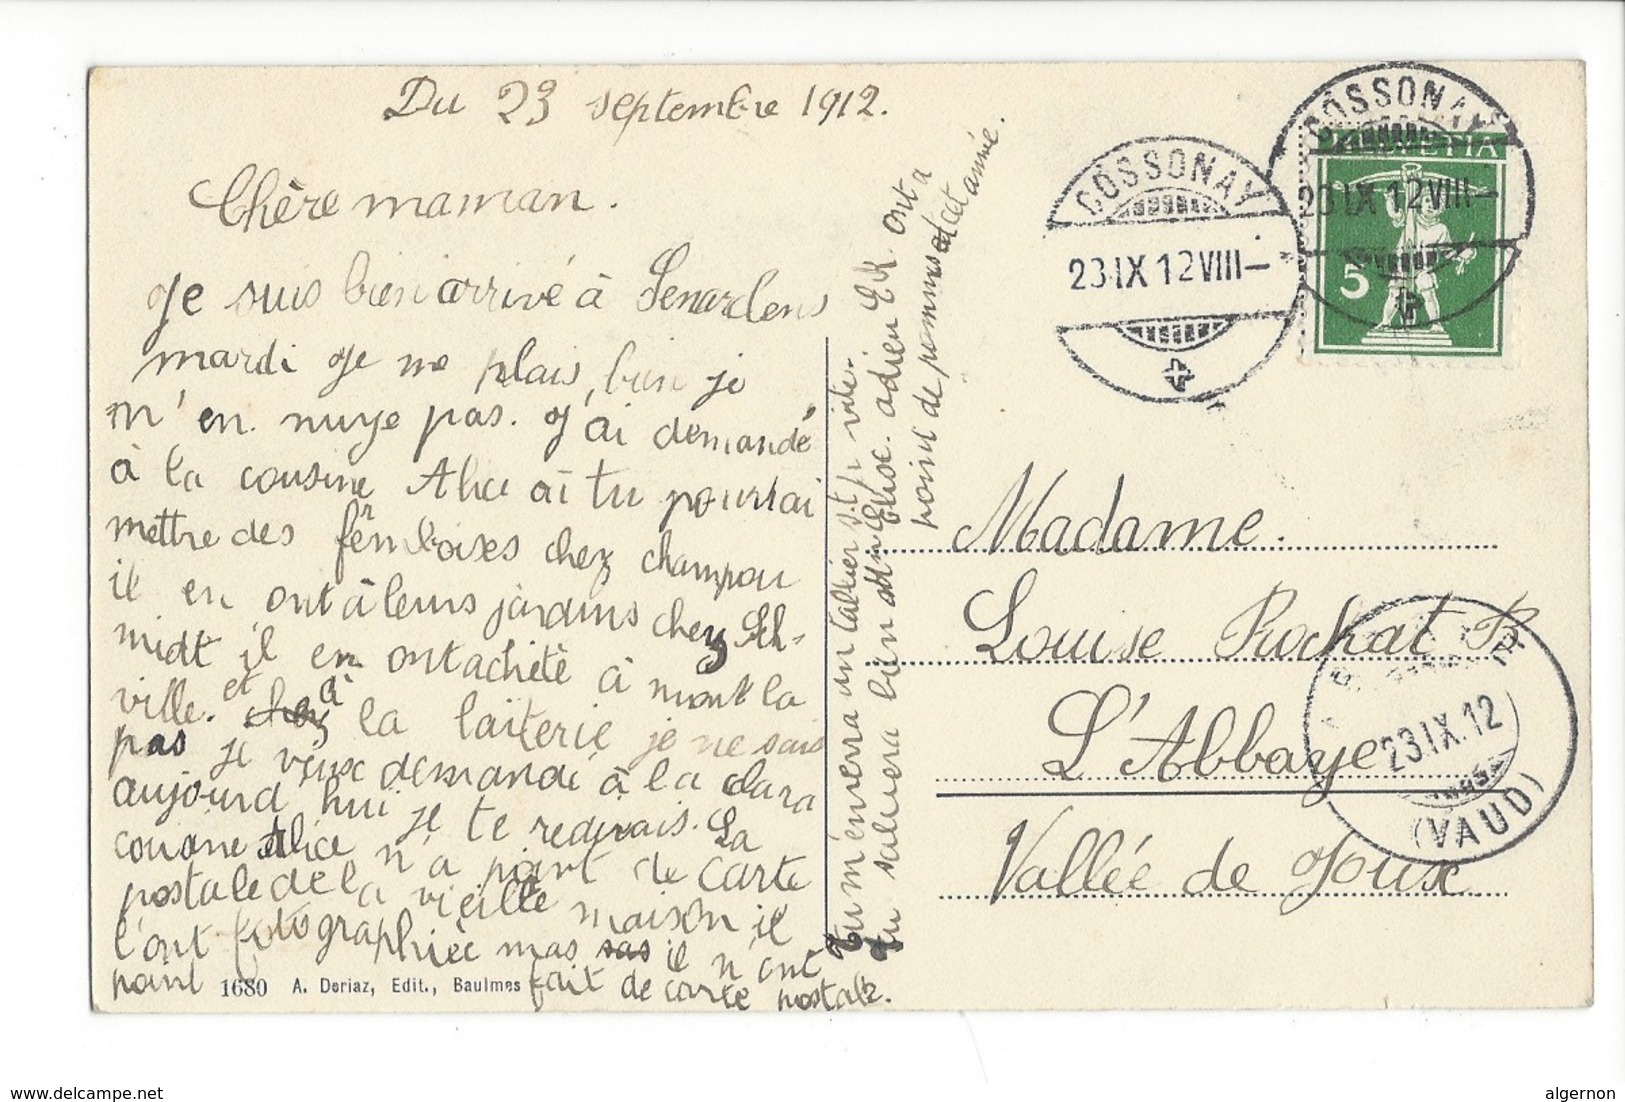 Du 23 septembre 1912.
Chère maman.
Je suis bien arrivé à Senarclens
mardi je me plais bien je
m'en nuye pas. J'ai demandé
à la cousine Alice ai tu pourrai
mettre des fernboises chez champou
il en ont à leurs jardins chez Sch-
midt il en ont achètè à mont la
ville. et chez à la laiterie je ne sais
pas je veux demandé à la clara
aujourd hui je te redirais. La
cousine Alice n'a point de carte
postale de la vieille maison il
l'ont fotographiée mas sas il n'ont
point fait de carte postale.
1680 A. Deriaz, Edit., Baulmes
Tu m'énverra un cahier s.t.p. vite.
Tu saluera bien Elise. adrien ont a
point de pommes cet année.
COSSONAY
23.IX.12.VIII–
COSSONAY
23.IX.12.VIII–
HELVETIA
5
Madame.
Louise Rochat B.
L'Abbaye
Vallée de Joux
23.IX.12
(VAUD)
delcampe.net
algernon